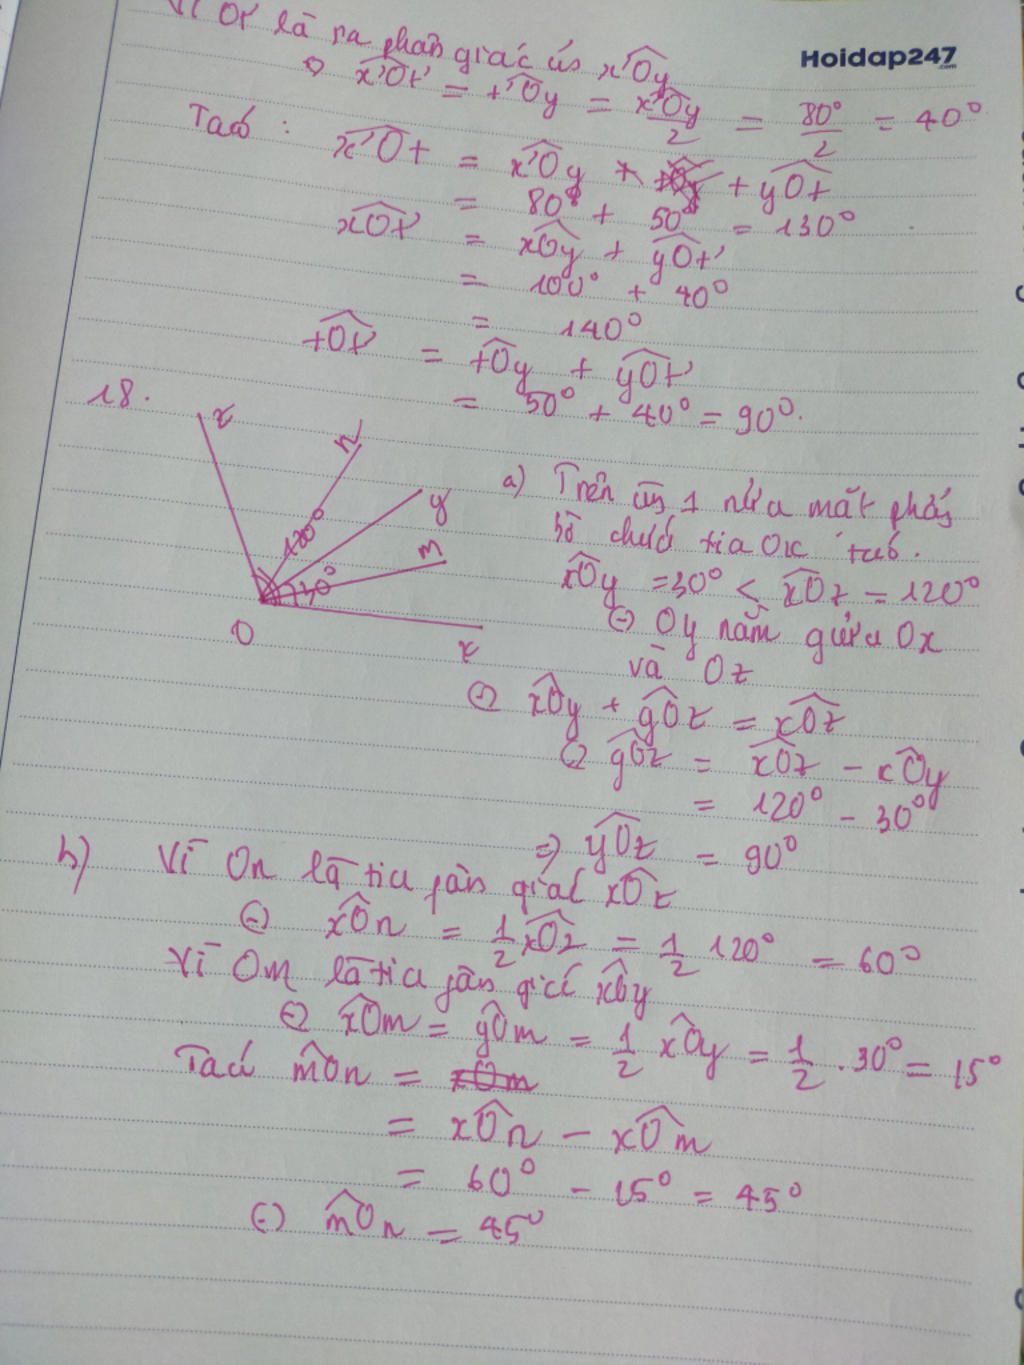 Vì Ot' là tia phân giác của x'Oy
Hoidap247.com
=> x'Ot' = t'Oy = x'Oy/2 = 80°/2 = 40°
Ta có : x'Ot = x'Oy + yOt
= 80° + 50° = 130°
xOt' = xOy + yOt'
= 100° + 40°
= 140°
tOt' = tOy + yOt'
= 50° + 40° = 90°.
18.
z n y m x O 120° 30°
a) Trên cùng 1 nửa mặt phẳng
bờ chứa tia Ox ta có.
xOy = 30° < xOz = 120°
=> Oy nằm giữa Ox
và Oz
=> xOy + yOz = xOz
=> yOz = xOz - xOy
= 120° - 30°
=> yOz = 90°
b) Vì On là tia phân giác xOz
=> xOn = 1/2 xOz = 1/2 120° = 60°
Vì Om là tia phân giác xOy
=> xOm = yOm = 1/2 xOy = 1/2 . 30° = 15°
Ta có mOn =
= xOn - xOm
= 60° - 15° = 45°
=> mOn = 45°